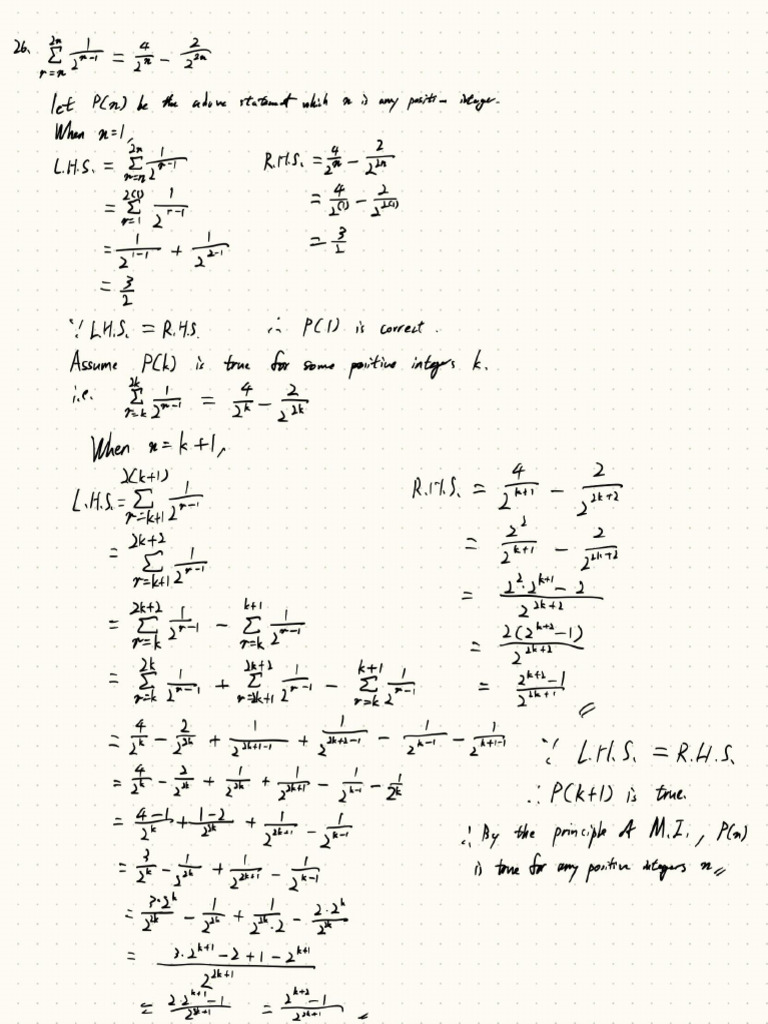 26. \sum_{r=n}^{2n} \frac{1}{2^{r-1}} = \frac{4}{2^n} - \frac{2}{2^{2n}}
let P(n) be the above statement which n is any positive integer.
When n=1,
L.H.S. = \sum_{r=n}^{2n} \frac{1}{2^{r-1}}
= \sum_{r=1}^{2(1)} \frac{1}{2^{r-1}}
= \frac{1}{2^{1-1}} + \frac{1}{2^{2-1}}
= \frac{3}{2}
R.H.S. = \frac{4}{2^n} - \frac{2}{2^{2n}}
= \frac{4}{2^{(1)}} - \frac{2}{2^{2(1)}}
= \frac{3}{2}
∵ L.H.S. = R.H.S. ∴ P(1) is correct.
Assume P(k) is true for some positive integers k.
i.e. \sum_{r=k}^{2k} \frac{1}{2^{r-1}} = \frac{4}{2^k} - \frac{2}{2^{2k}}
When n = k+1,
L.H.S. = \sum_{r=k+1}^{2(k+1)} \frac{1}{2^{r-1}}
= \sum_{r=k+1}^{2k+2} \frac{1}{2^{r-1}}
= \sum_{r=k}^{2k+2} \frac{1}{2^{r-1}} - \sum_{r=k}^{k+1} \frac{1}{2^{r-1}}
= \sum_{r=k}^{2k} \frac{1}{2^{r-1}} + \sum_{r=2k+1}^{2k+2} \frac{1}{2^{r-1}} - \sum_{r=k}^{k+1} \frac{1}{2^{r-1}}
= \frac{4}{2^k} - \frac{2}{2^{2k}} + \frac{1}{2^{2k+1-1}} + \frac{1}{2^{2k+2-1}} - \frac{1}{2^{k-1}} - \frac{1}{2^{k+1-1}}
= \frac{4}{2^k} - \frac{2}{2^{2k}} + \frac{1}{2^{2k}} + \frac{1}{2^{2k+1}} - \frac{1}{2^{k-1}} - \frac{1}{2^k}
= \frac{4-1}{2^k} + \frac{1-2}{2^{2k}} + \frac{1}{2^{2k+1}} - \frac{1}{2^{k-1}}
= \frac{3}{2^k} - \frac{1}{2^{2k}} + \frac{1}{2^{2k+1}} - \frac{1}{2^{k-1}}
= \frac{3 \cdot 2^k}{2^{2k}} - \frac{1}{2^{2k}} + \frac{1}{2^{2k} \cdot 2} - \frac{2 \cdot 2^k}{2^{2k}}
= \frac{3 \cdot 2^{k+1} - 2 + 1 - 2^{k+1}}{2^{2k+1}}
= \frac{2 \cdot 2^{k+1} - 1}{2^{2k+1}} = \frac{2^{k+2} - 1}{2^{2k+1}}
R.H.S. = \frac{4}{2^{k+1}} - \frac{2}{2^{2k+2}}
= \frac{2^2}{2^{k+1}} - \frac{2}{2^{2k+2}}
= \frac{2^2 \cdot 2^{k+1} - 2}{2^{2k+2}}
= \frac{2(2^{k+2} - 1)}{2^{2k+2}}
= \frac{2^{k+2} - 1}{2^{2k+1}}
∵ L.H.S. = R.H.S.
∴ P(k+1) is true.
∴ By the principle of M.I., P(n)
is true for any positive integers n